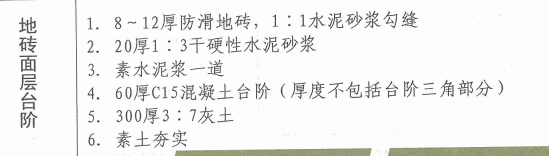 地砖面层台阶
1. 8～12厚防滑地砖，1∶1水泥砂浆勾缝
2. 20厚1∶3干硬性水泥砂浆
3. 素水泥浆一道
4. 60厚C15混凝土台阶（厚度不包括台阶三角部分）
5. 300厚3∶7灰土
6. 素土夯实